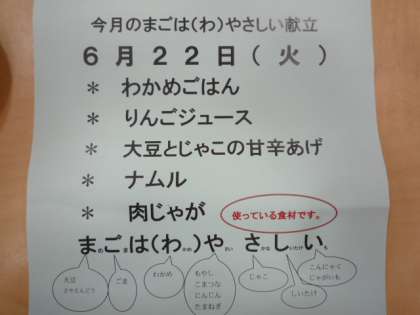 今月のまごは(わ)やさしい献立
6月22日(火)
＊ わかめごはん
＊ りんごジュース
＊ 大豆とじゃこの甘辛あげ
＊ ナムル
＊ 肉じゃが
使っている食材です。
まめごまは(わ)かめやさいさかなしいたけいも
大豆
さやえんどう
ごま
わかめ
もやし
こまつな
にんじん
たまねぎ
じゃこ
しいたけ
こんにゃく
じゃがいも